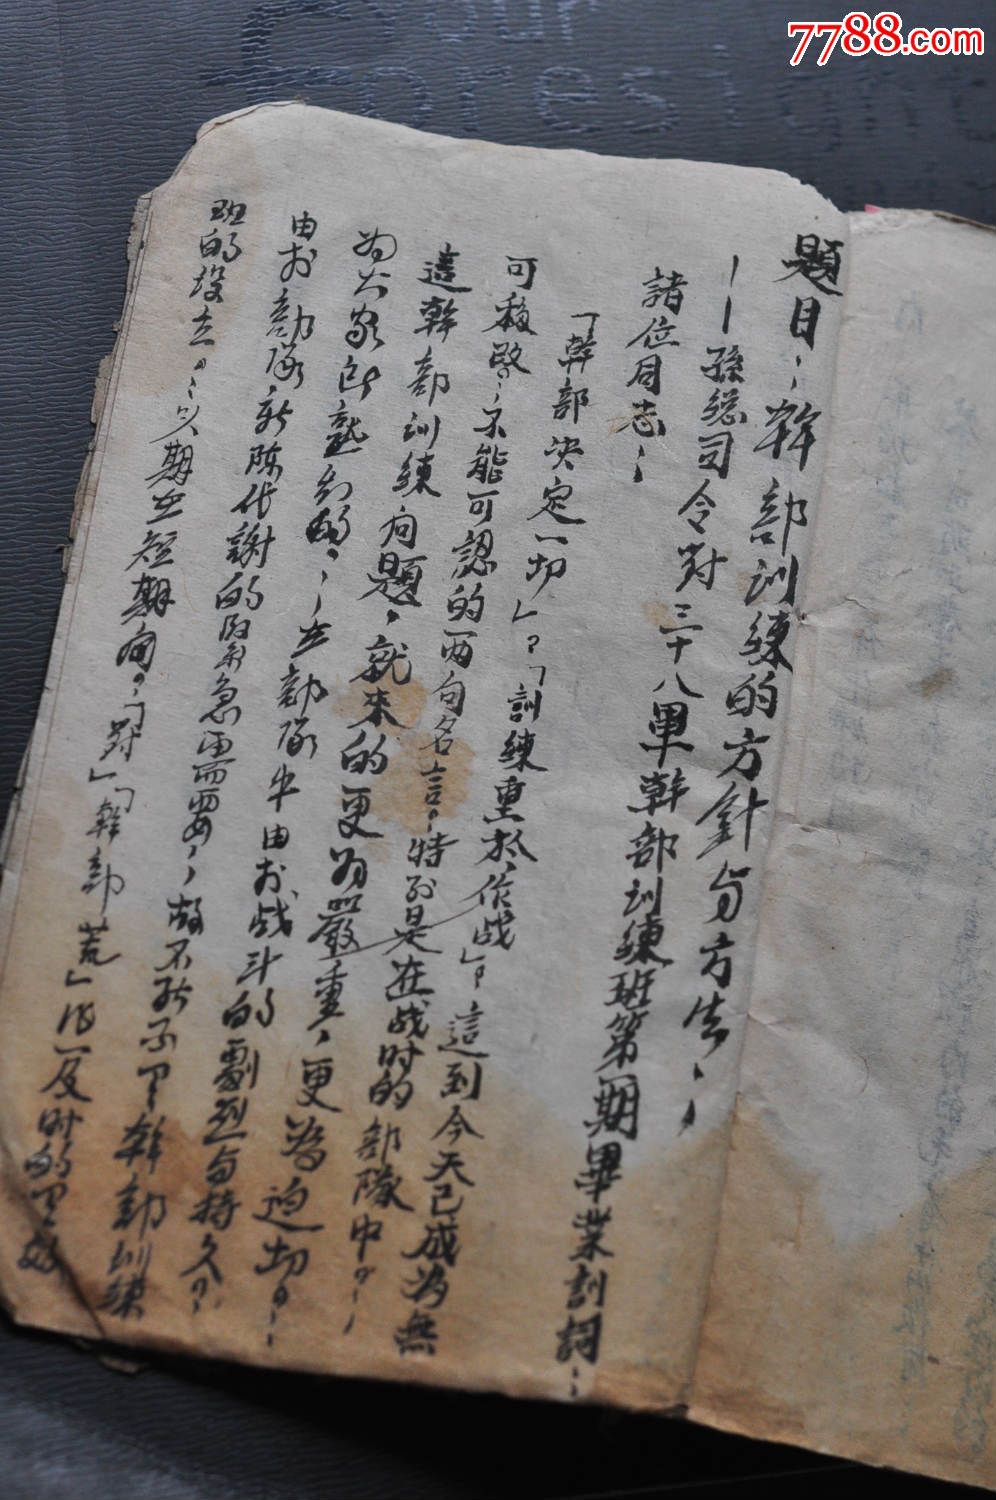 題目：幹部訓練的方針与方法：
——孫總司令對三十八軍幹部訓練班第一期畢業訓詞：
諸位同志：
「幹部決定一切」？「訓練重於作战」？這到今天已成為無
可移改，不能可認的两句名言。特别是在战时的部隊中。
這幹部訓練问題，就来的更为嚴重，更為迫切。
为大家所熟知的，在部隊中由於战斗的劇烈与持久。
由於部隊新陈代謝的緊急需要，故不能不举幹部訓練
班的設立。以期在短期內。「對」「幹部荒」作一及时的
7788.com